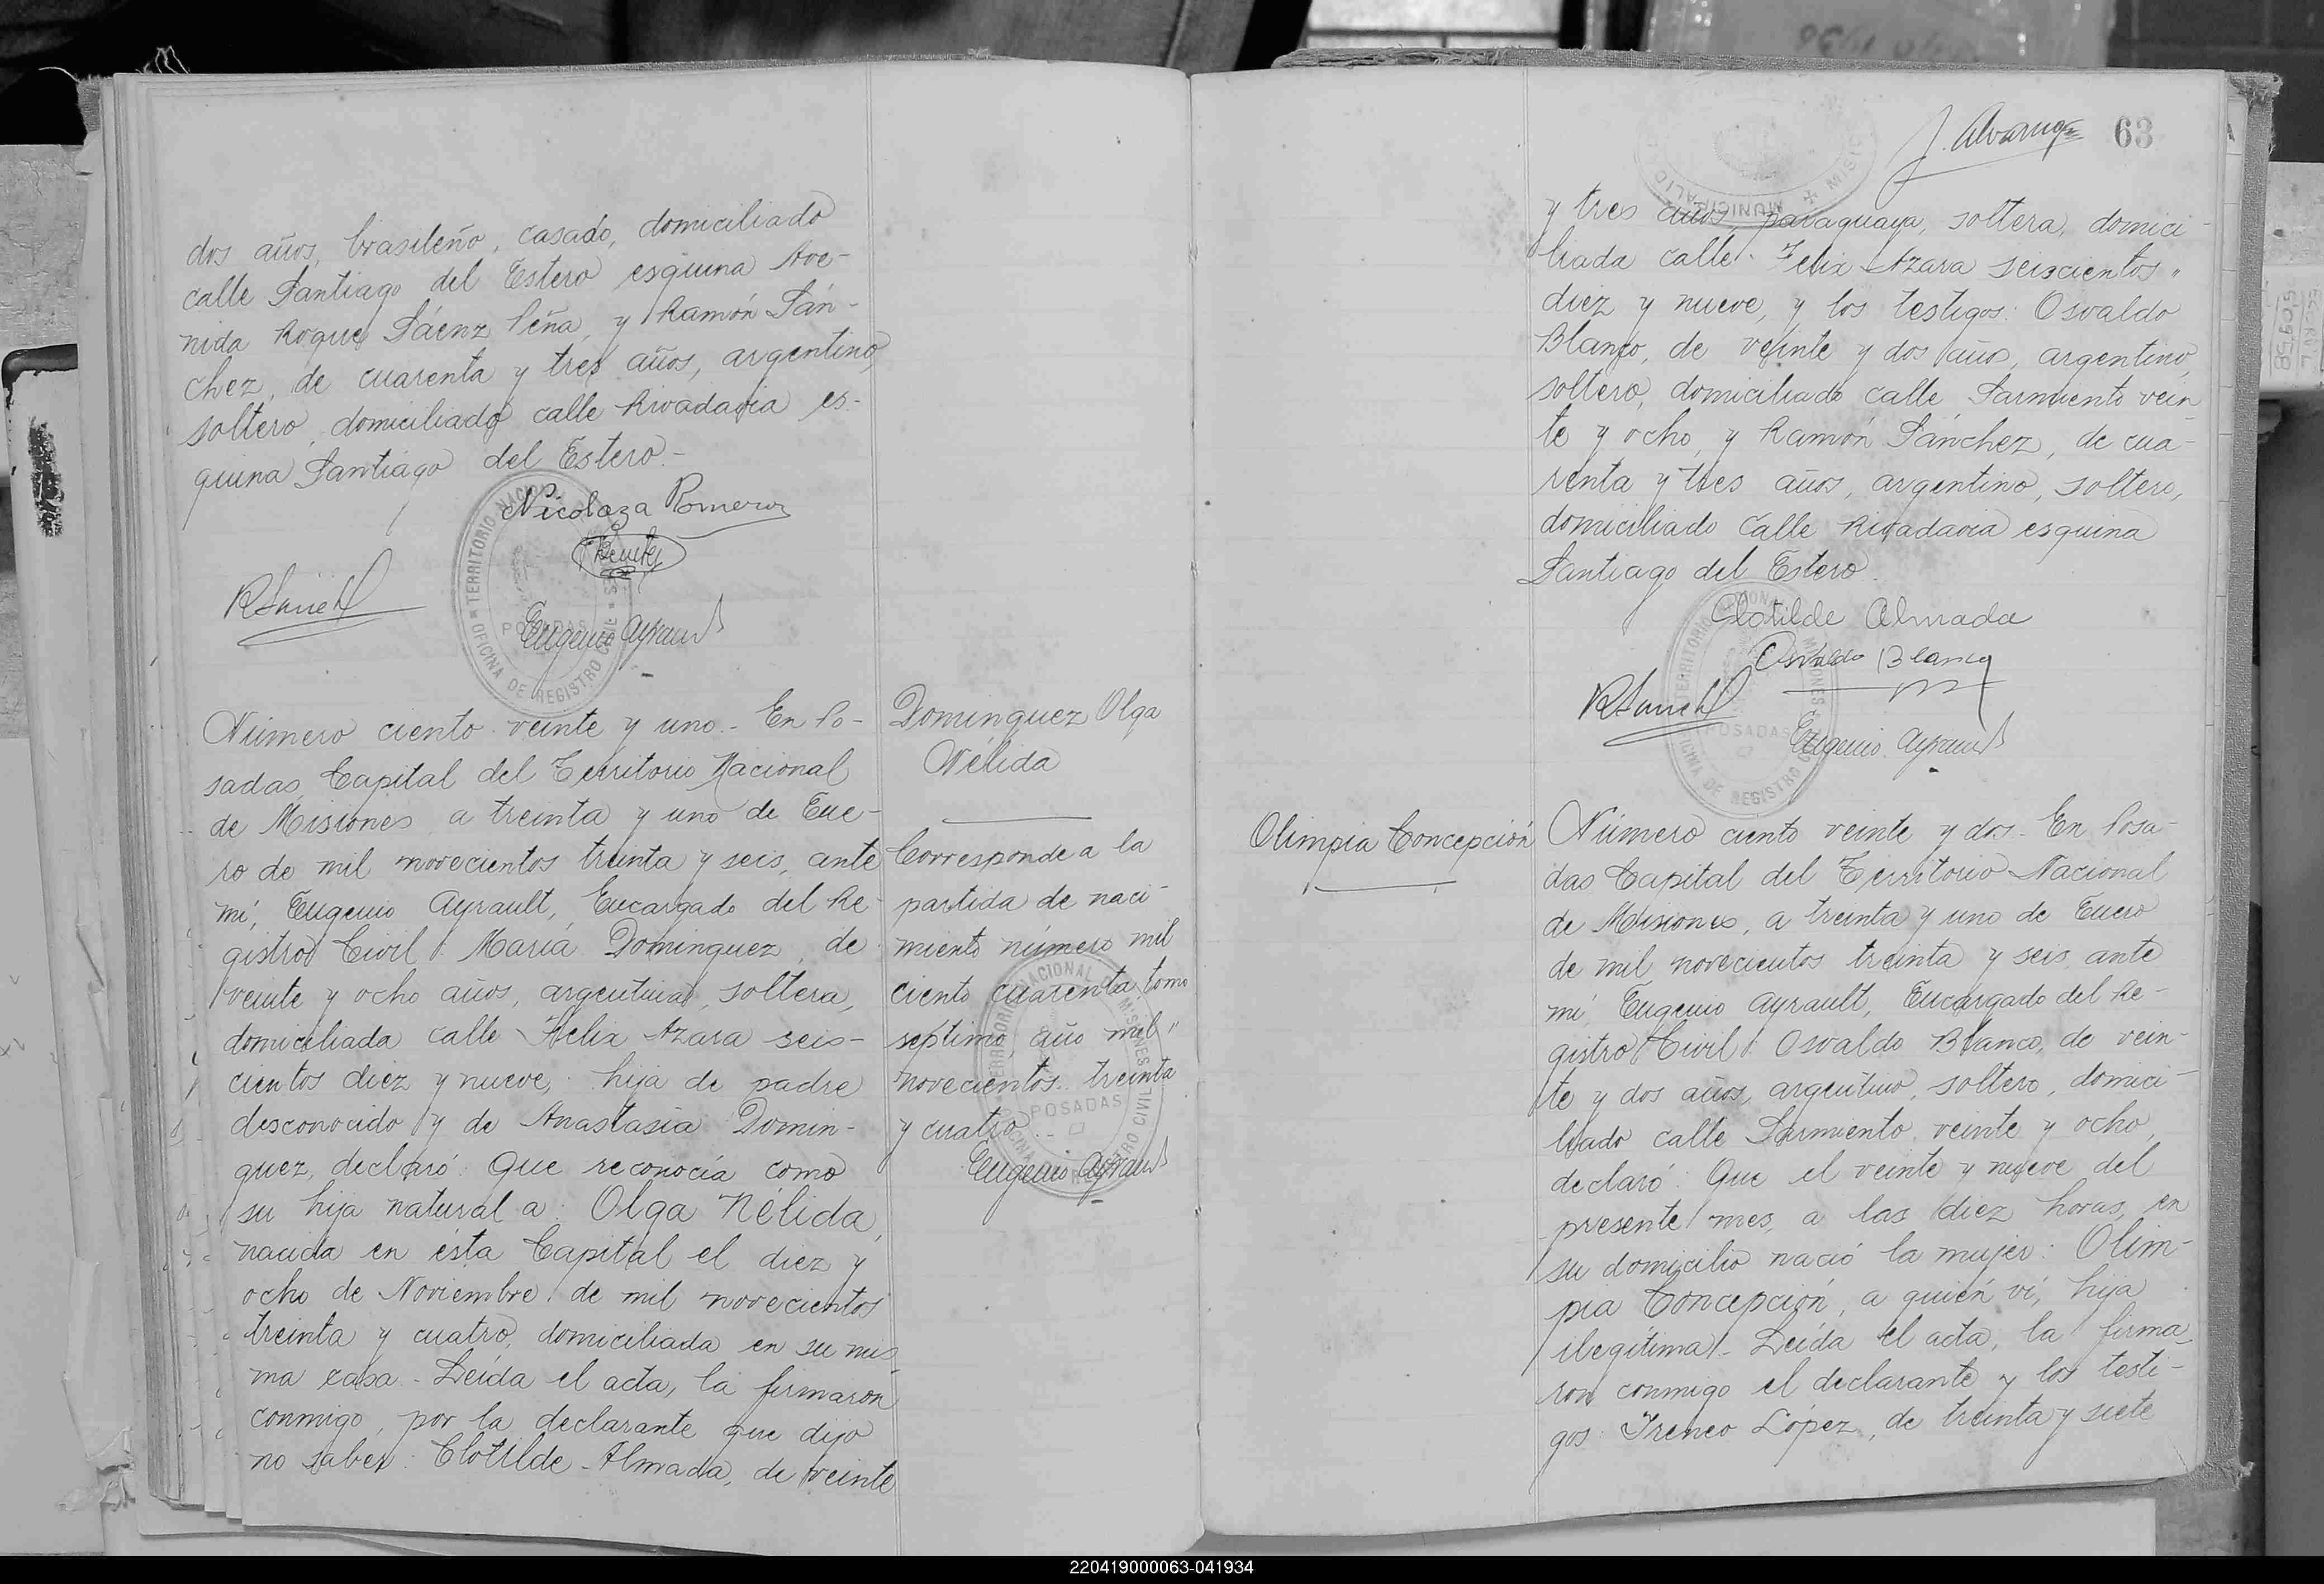 dos años, brasileño, casado, domiciliado
calle Santiago del Estero esquina Ave-
nida Roque Sáenz Peña, y Ramón Sán-
chez, de cuarenta y tres años, argentino,
soltero, domiciliado calle Rivadavia es-
quina Santiago del Estero.-
Nicolaza Romero
Eugenio Ayrault
TERRITORIO NACIONAL
POSADAS
OFICINA DE REGISTRO CIVIL
Número ciento veinte y uno.- En Po-
sadas, Capital del Territorio Nacional
de Misiones a treinta y uno de Ene-
ro de mil novecientos treinta y seis, ante
mí, Eugenio Ayrault, Encargado del Re-
gistro Civil: María Dominguez, de
veinte y ocho años, argentina, soltera,
domiciliada calle Felix Azara seis-
cientos diez y nueve, hija de padre
desconocido y de Anastasia Domin-
guez, declaró: Que reconocía como
su hija natural a: Olga Nélida,
nacida en ésta Capital el diez y
ocho de Noviembre de mil novecientos
treinta y cuatro, domiciliada en su mis
ma casa.- Leída el acta, la firmaron
conmigo, por la declarante que dijo
no saber: Clotilde Almada, de veinte
Dominguez Olga
Nélida
Corresponde a la
partida de naci-
miento número mil
ciento cuarenta, tomo
septimo, año mil "
novecientos treinta
y cuatro.-
Eugenio Ayrault
POSADAS
J. Alvarenga
63
MUNICIPALID
y tres años, paraguaya, soltera, domici-
liada calle Felix Azara seiscientos "
diez y nueve, y los testigos: Osvaldo
Blanco, de veinte y dos años, argentino,
soltero, domiciliado calle Sarmiento vein
te y ocho, y Ramón Sánchez, de cua-
renta y tres años, argentino, soltero,
domiciliado calle Rivadavia esquina
Santiago del Estero.
Clotilde Almada
Osvaldo Blanco
Eugenio Ayrault
POSADAS
Olimpia Concepción
Número ciento veinte y dos.- En Posa-
das Capital del Territorio Nacional
de Misiones, a treinta y uno de Enero
de mil novecientos treinta y seis, ante
mí Eugenio Ayrault, Encargado del Re-
gistro Civil: Osvaldo Blanco, de vein-
te y dos años, argentino, soltero, domici-
liado calle Sarmiento veinte y ocho,
declaró: Que el veinte y nueve del
presente mes, a las diez horas, en
su domicilio nació la mujer: Olim-
pia Concepción, a quién ví, hija
ilegítima.- Leída el acta, la firma-
ron conmigo el declarante y los testi-
gos: Ireneo López, de treinta y siete
220419000063-041934